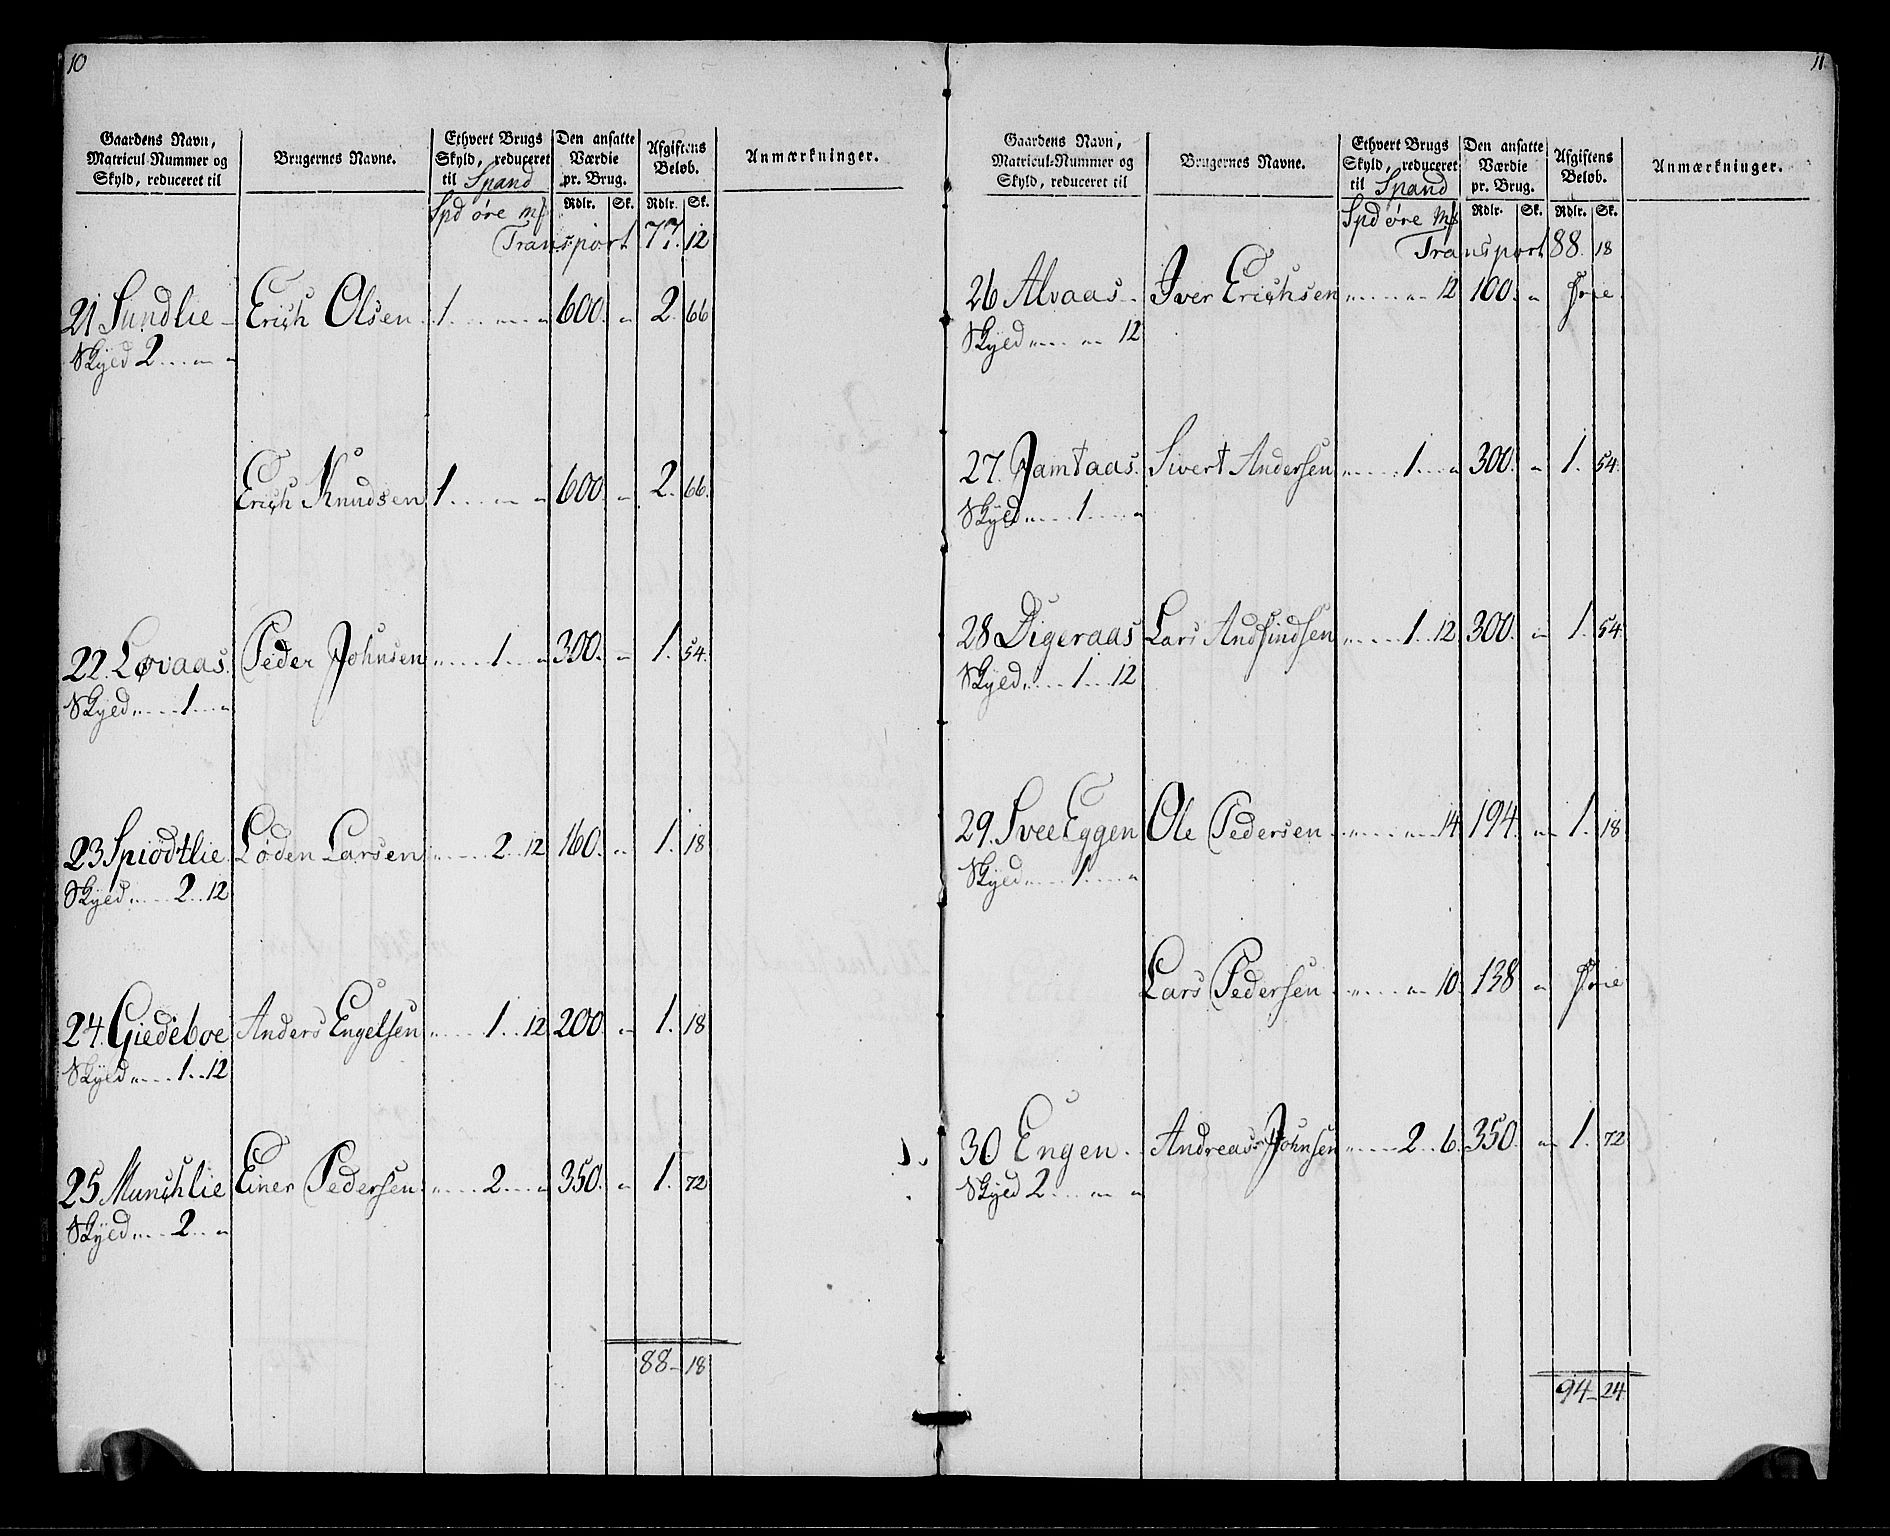 10
Gaardens Navn, Matricul-Nummer og Skyld, reduceret til
Brugernes Navne.
Ethvert Brugs Skyld, reduceret til Spand
Den ansatte Værdie pr. Brug.
Afgiftens Beløb.
Anmærkninger.
Spd øre mk
Rdlr. Sk. Rdlr. Sk.
Transport 77. 12
21 Sundlie Erich Olsen 1 . . . . „ 600. „ 2. 66
Skyld 2 . . „ „
Erich Knudsen 1 . . . „ „ 600. „ 2. 66.
22. Løvaas. Peder Johnsen „ . . . 1 . . „ 300. „ 1. 54.
Skyld „ . . . 1 . . „
23 Spiødtlie Løden Larsen „ . . . 2 . . 12 160. „ 1. 18
Skyld „ . . . 2 . . 12
24. Giedeboe Anders Engelsen „ . . . 1 . . 12 200. „ 1. 18
Skyld „ . . . 1 . . 12
25 Munchlie Einer Pedersen „ . . . 2 . . „ 350. „ 1. 72
Skyld „ . . . 2 . . „
88 – 18
11.
Gaardens Navn, Matricul-Nummer og Skyld, reduceret til
Brugernes Navne.
Ethvert Brugs Skyld, reduceret til Spand
Den ansatte Værdie pr. Brug.
Afgiftens Beløb.
Anmærkninger.
Spd øre mk
Rdlr. Sk. Rdlr. Sk.
Transport 88. 18
26 Alvaas Iver Erichsen „ . . . „ 12 100. „ frie.
Skyld „ . . . „ 12
27. Jamtaas. Sivert Andersen „ . . . 1 . . „ 300. „ 1. 54.
Skyld „ . . . 1 . . . „
28 Digeraas Lars Andfindsen „ . . . 1 . . 12 300. „ 1. 54
Skyld „ . . . 1 . . 12
29. SveeEggen Ole Pedersen „ . . . „ 14 194. „ 1. 18
Skyld „ . . . 1 . . . „
Lars Pedersen „ . . . „ 10. 138 „ frie
30 Engen. Andreas Johnsen „ . . . 2 . . 6. 350. „ 1. 72
Skyld 2 . . . „ „
94 – 24